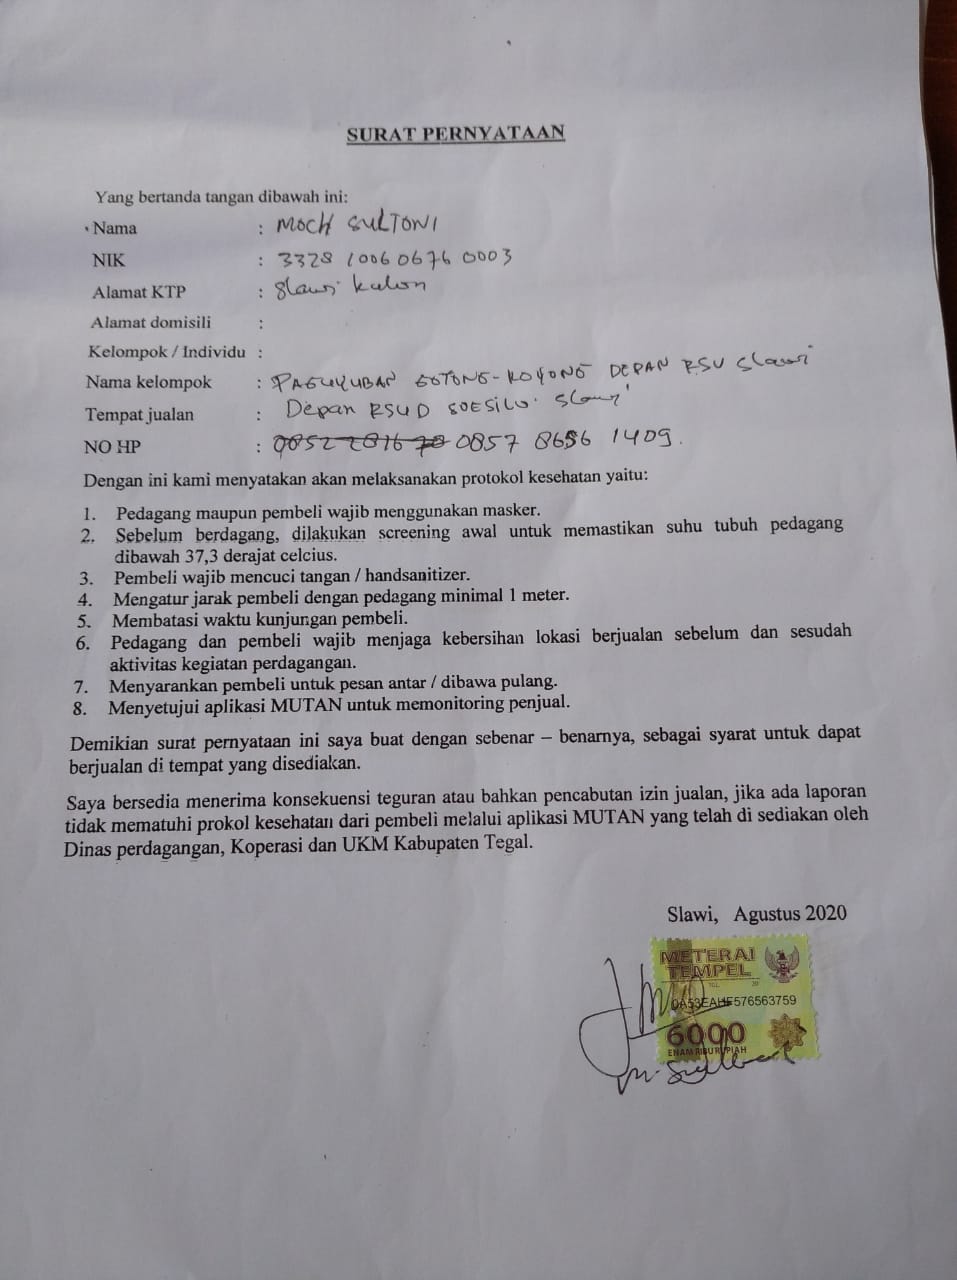 SURAT PERNYATAAN
Yang bertanda tangan dibawah ini:
Nama : MOCH SULTONI
NIK : 3328 1006 0676 0003
Alamat KTP : Slawi kulon
Alamat domisili :
Kelompok / Individu :
Nama kelompok : PAGUYUBAN GOTONG-ROYONG DEPAN RSU Slawi
Tempat jualan : Depan RSUD SOESILO Slawi
NO HP : 0857 8656 1409.
Dengan ini kami menyatakan akan melaksanakan protokol kesehatan yaitu:
1. Pedagang maupun pembeli wajib menggunakan masker.
2. Sebelum berdagang, dilakukan screening awal untuk memastikan suhu tubuh pedagang
dibawah 37,3 derajat celcius.
3. Pembeli wajib mencuci tangan / handsanitizer.
4. Mengatur jarak pembeli dengan pedagang minimal 1 meter.
5. Membatasi waktu kunjungan pembeli.
6. Pedagang dan pembeli wajib menjaga kebersihan lokasi berjualan sebelum dan sesudah
aktivitas kegiatan perdagangan.
7. Menyarankan pembeli untuk pesan antar / dibawa pulang.
8. Menyetujui aplikasi MUTAN untuk memonitoring penjual.
Demikian surat pernyataan ini saya buat dengan sebenar – benarnya, sebagai syarat untuk dapat
berjualan di tempat yang disediakan.
Saya bersedia menerima konsekuensi teguran atau bahkan pencabutan izin jualan, jika ada laporan
tidak mematuhi prokol kesehatan dari pembeli melalui aplikasi MUTAN yang telah di sediakan oleh
Dinas perdagangan, Koperasi dan UKM Kabupaten Tegal.
Slawi, Agustus 2020
METERAI
TEMPEL
TGL. 20
576563759
6000
ENAM RIBU RUPIAH